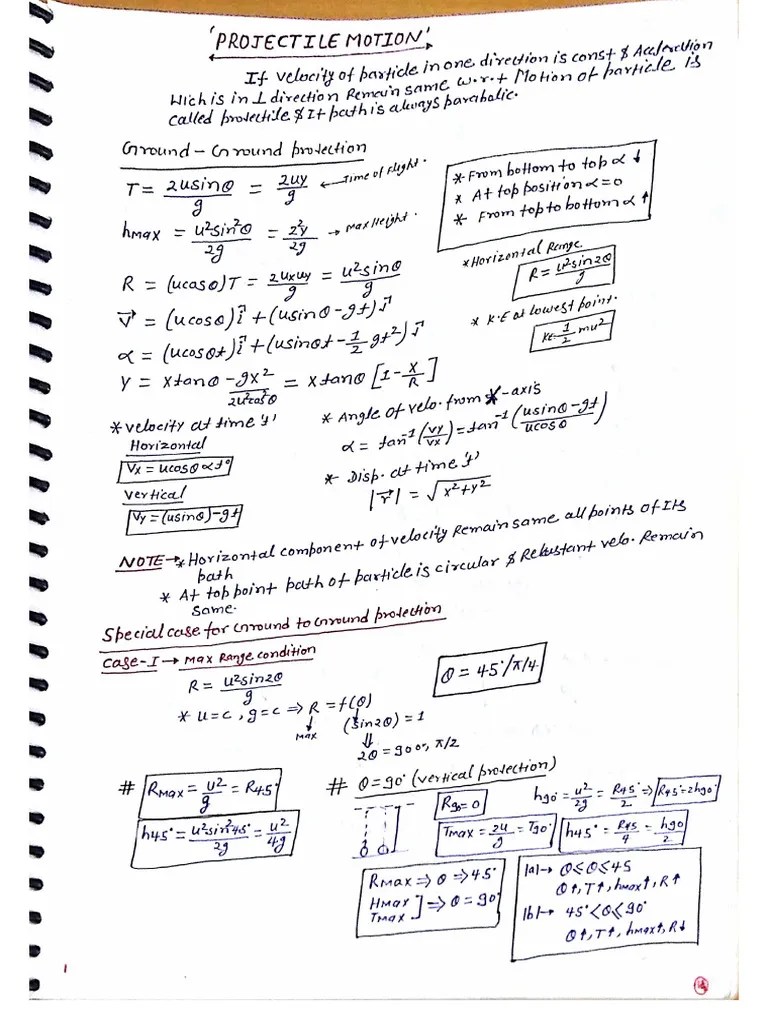 'PROJECTILE MOTION'
If velocity of particle in one direction is const & Accleration
which is in ⊥ direction Remain same w.r.t Motion of particle is
called projectile & It path is always parabolic.
Ground - Ground projection
T = 2usinθ/g = 2uy/g ← Time of Flight.
hmax = u²sin²θ/2g = 2²y/2g → Max Height.
* From bottom to top α ↓
* At top position α = 0
* From top to bottom α ↑
R = (ucosθ)T = 2uxuy/g = u²sinθ/g
* Horizontal Range.
R = u²sin2θ/g
V⃗ = (ucosθ)i⃗ + (usinθ - gt)j⃗
α = (ucosθt)i⃗ + (usinθt - 1/2 gt²)j⃗
* K.E at lowest point.
KE = 1/2 mu²
Y = xtanθ - gx²/2u²cos²θ = xtanθ [1 - x/R]
* velocity at time 't'
Horizontal
Vx = ucosθ α t°
vertical
Vy = (usinθ) - gt
* Angle of velo. from x-axis
α = tan⁻¹(vy/vx) = tan⁻¹(usinθ - gt/ucosθ)
* Disp. at time 't'
|r⃗| = √x² + y²
NOTE → * Horizontal component of velocity Remain same all points of Its
path
* At top point path of particle is circular & Relustant velo. Remain
same.
Special case for Ground to Ground projection
Case-I → Max Range condition
R = u²sin2θ/g
θ = 45°/π/4
* u = c, g = c ⇒ R = f(θ)
↓ max
(sin2θ) = 1
⇓
2θ = 90°, π/2
# Rmax = u²/g = R45°
h45° = u²sin²45°/2g = u²/4g
# θ = 90° (vertical projection)
R90 = 0
Tmax = 2u/g = T90°
h90° = u²/2g = R45°/2 ⇒ R45° = 2h90°
h45° = R45/4 = h90/2
Rmax ⇒ θ ⇒ 45°
Hmax
Tmax ] ⇒ θ = 90°
|a| → 0 ≤ θ ≤ 45
θ↑, T↑, hmax↑, R↑
|b| → 45° < θ ≤ 90°
θ↑, T↑, hmax↑, R↓
1